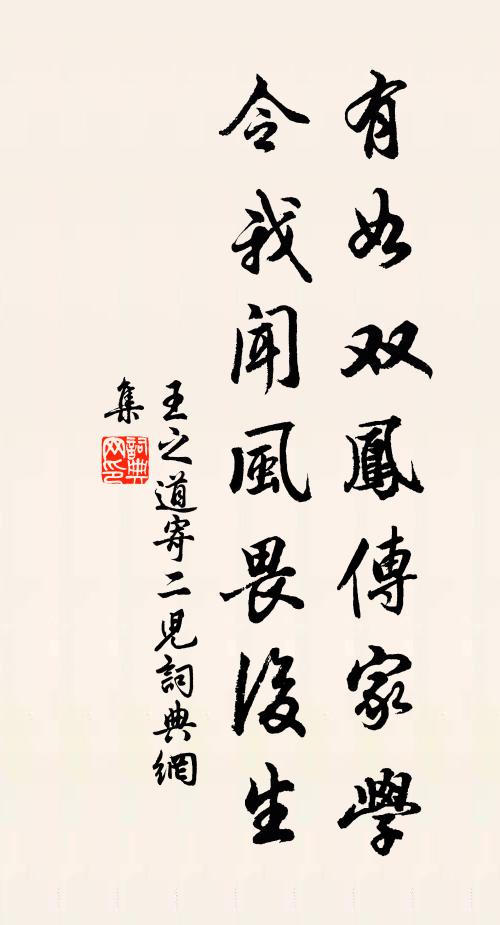 有如双鳳傳家學
令我聞風畏後生
王之道寄二児詞典網
集
詞典
网印